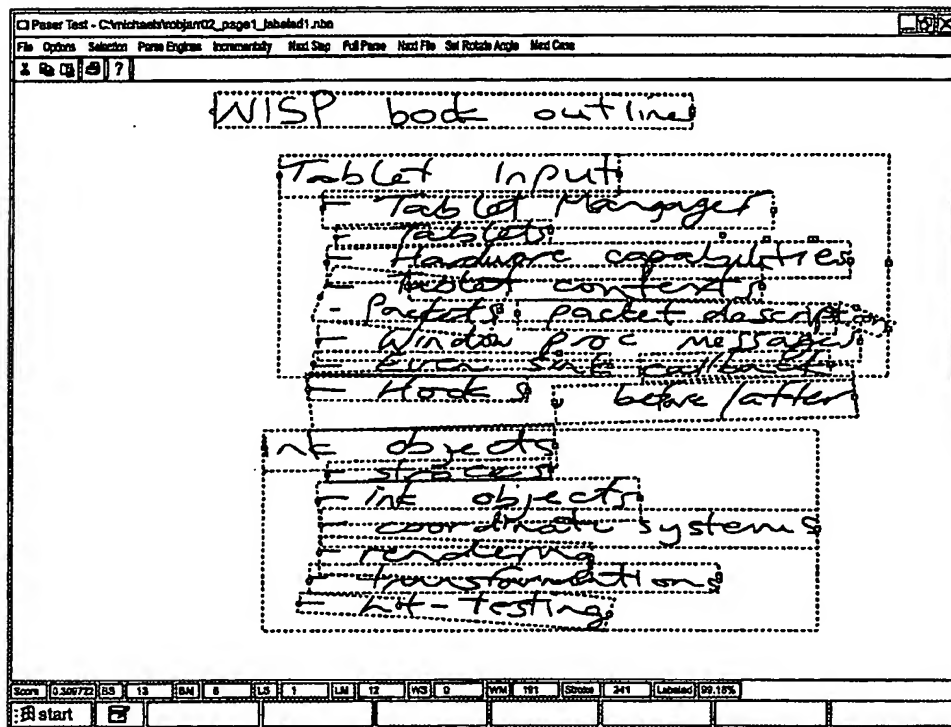 Paser Test - C:\michaels\robjarr02_page1_labeled1.nbn
File Options Selection Parse Engines Incrementally Next Step Full Parse Next File Set Rotate Angle Next Case
?
WISP book outline
Tablet Input
- Tablet Mangager
- Tablets
- Hardware capabilities
- Tablet contexts
- Packets packet description
- Window proc messages
- sink callback
- Hooks before/after
Ink objects
- strokes
- ink objects
- coordinate systems
- rendering
- transformations
- hit-testing
Score 0.309722 BS 13 BM 6 LS 1 LM 12 WS 0 WM 191 Stroke 241 Labeled 99.18%
start